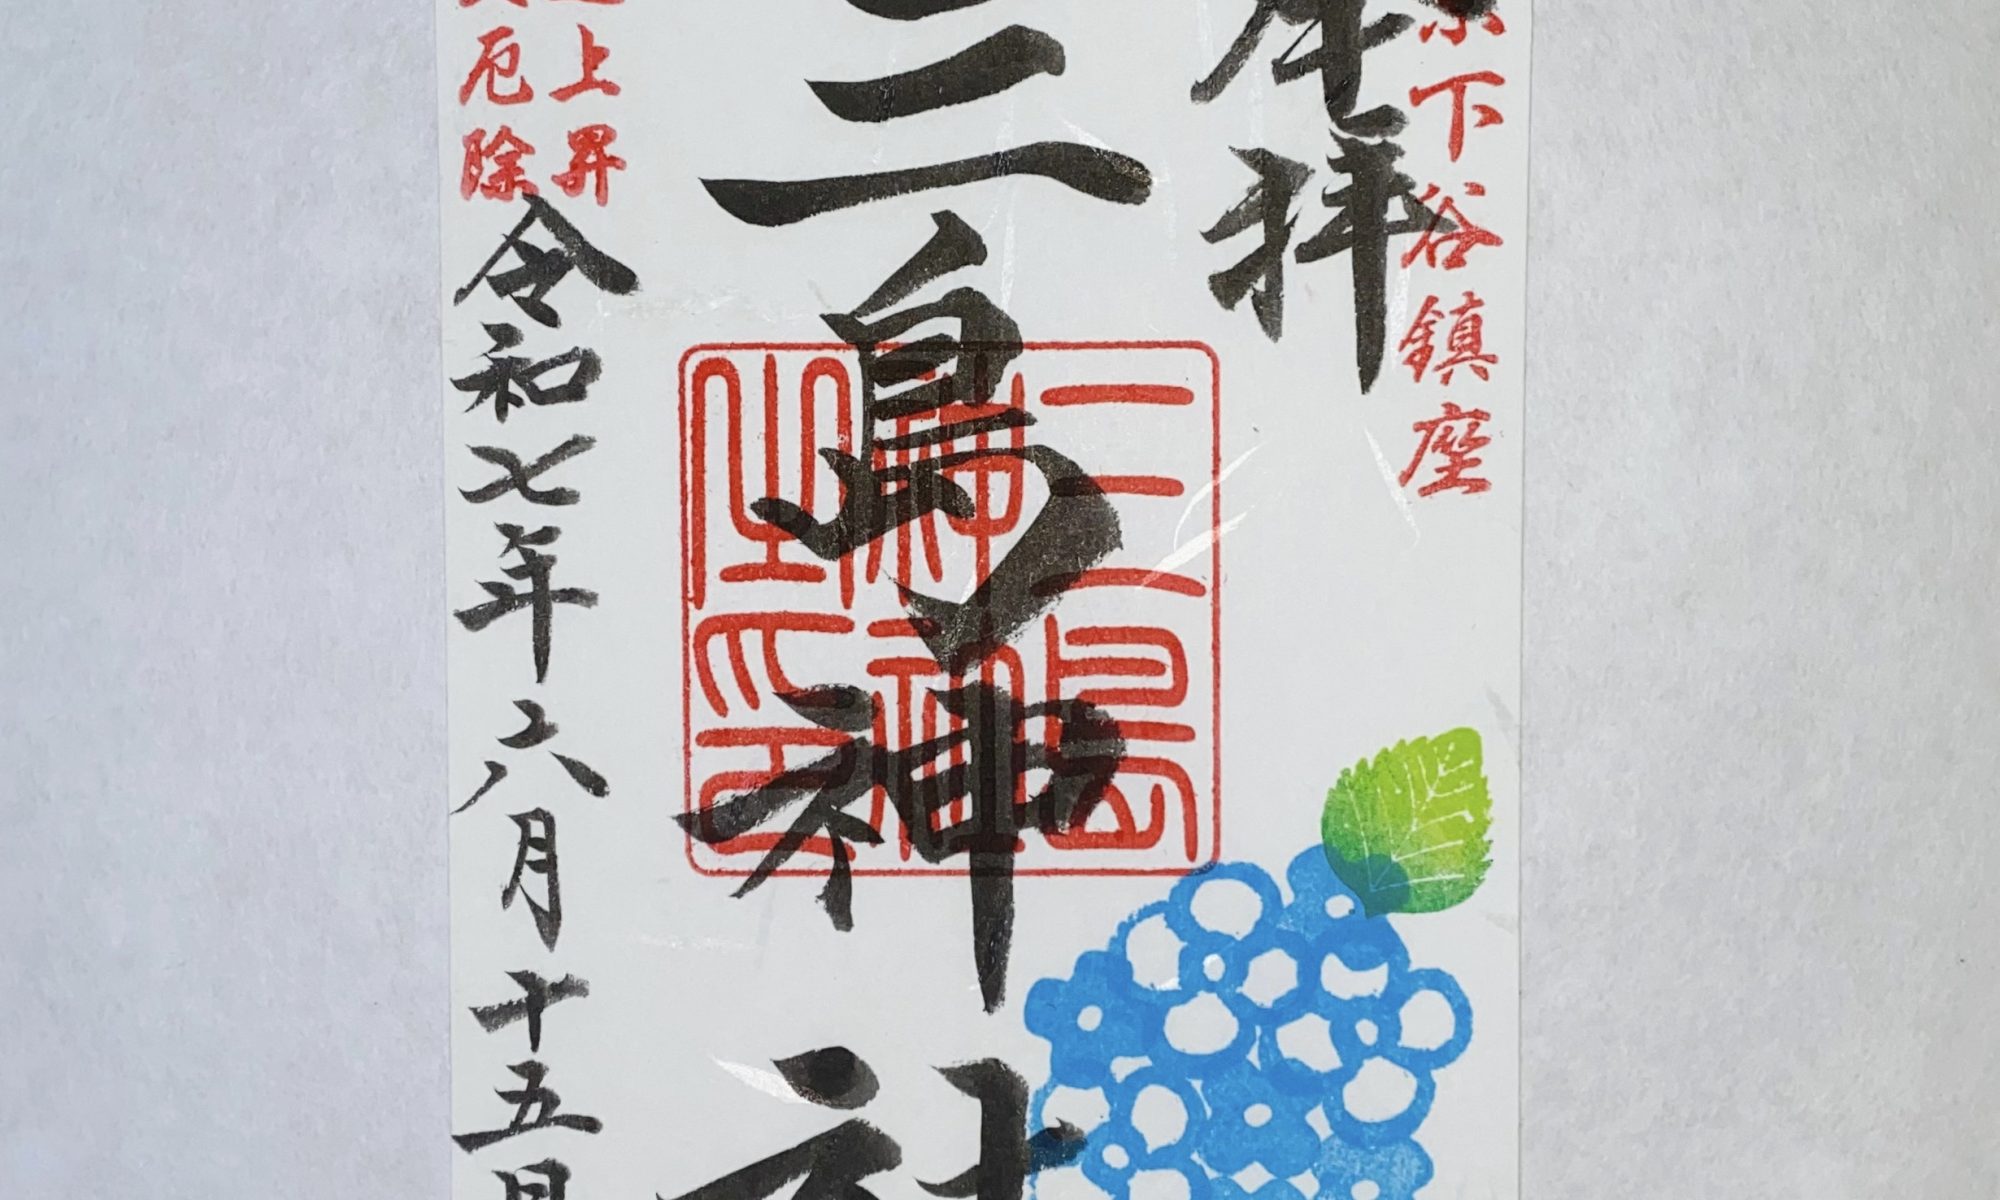 下谷鎮座
拝
三島神社
三島神社之印
上昇
厄除
令和七年六月十五日